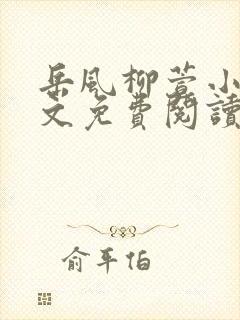 岳風柳萱小
文免費閱讀
俞平伯